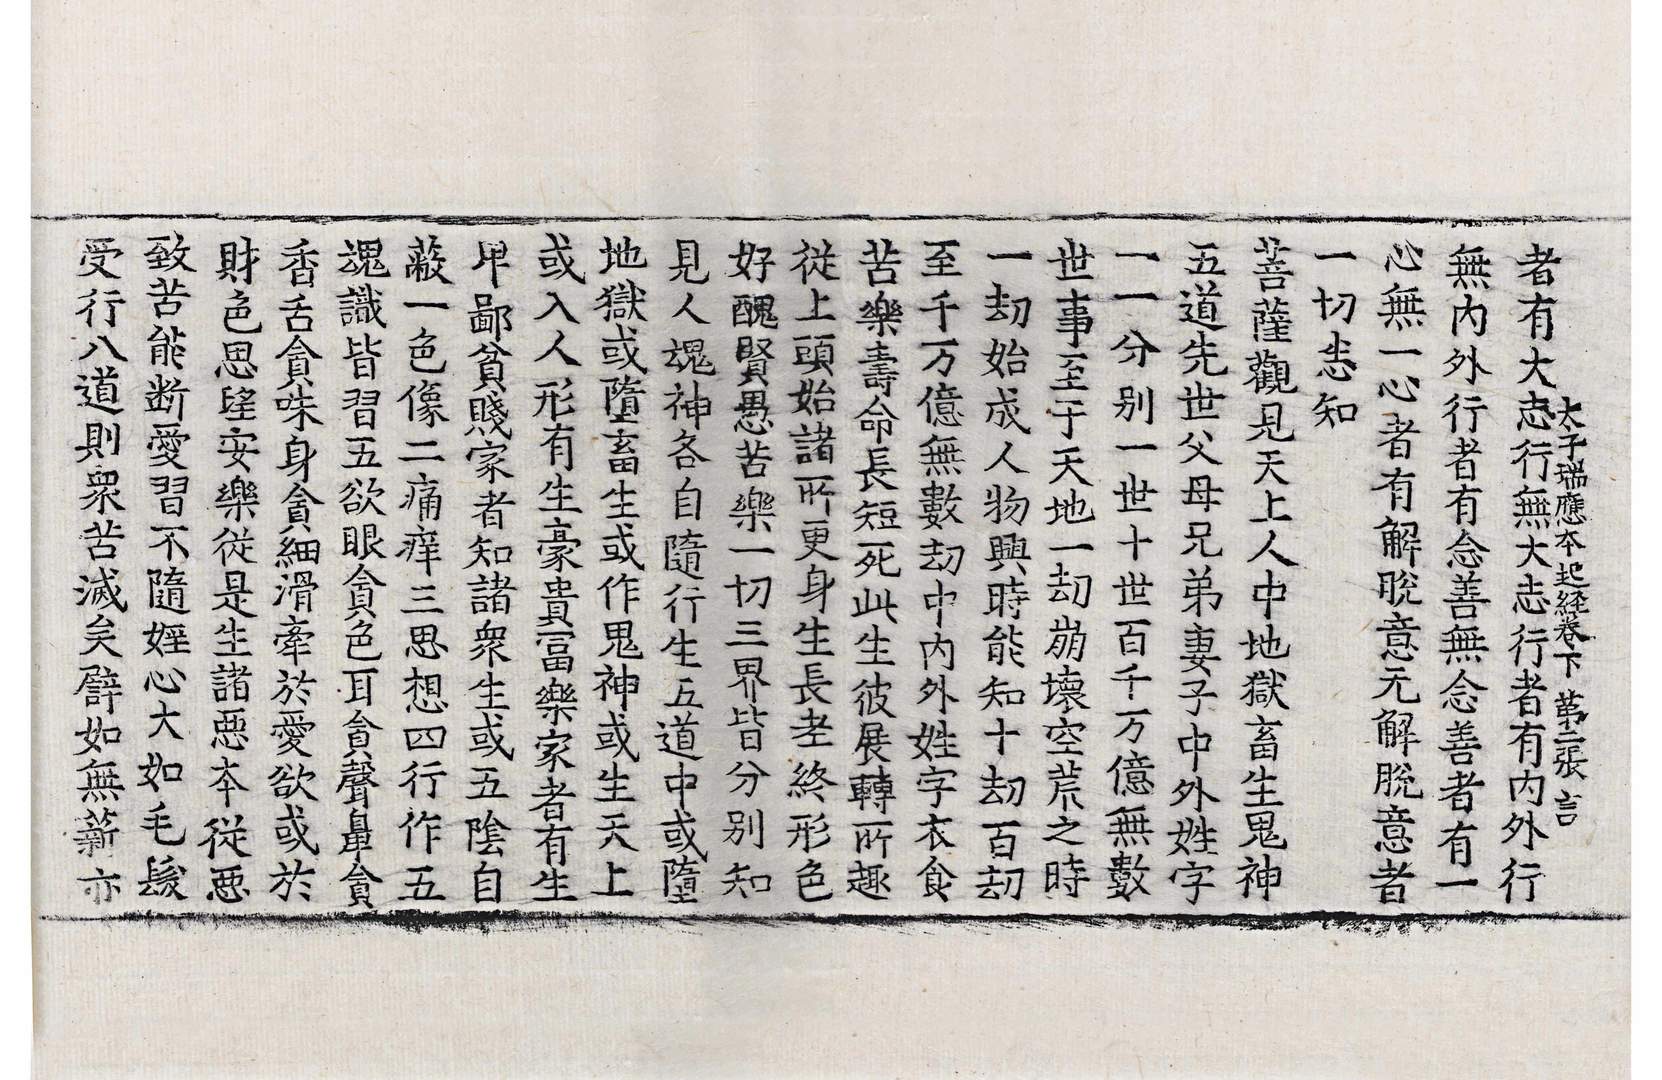 太子瑞應本起経卷下 第二張 言
者有大志行無大志行者有内外行
無内外行者有念善無念善者有一
心無一心者有解脫意无解脫意者
一切悉知
菩薩觀見天上人中地獄畜生鬼神
五道先世父母兄弟妻子中外姓字
一一分别一世十世百千万億無數
世事至于天地一刧崩壞空荒之時
一刧始成人物興時能知十刧百刧
至千万億無數刧中内外姓字衣食
苦樂壽命長短死此生彼展轉所趣
從上頭始諸所更身生長老終形色
好醜賢愚苦樂一切三界皆分别知
見人魂神各自隨行生五道中或墮
地獄或墮畜生或作鬼神或生天上
或入人形有生豪貴冨樂家者有生
卑鄙貧賤家者知諸衆生或五陰自
蔽一色像二痛痒三思想四行作五
魂識皆習五欲眼貪色耳貪聲鼻貪
香舌貪味身貪細滑牽於愛欲或於
財色思望安樂從是生諸惡本從惡
致苦能断愛習不隨婬心大如毛髮
受行八道則衆苦滅矣譬如無薪亦